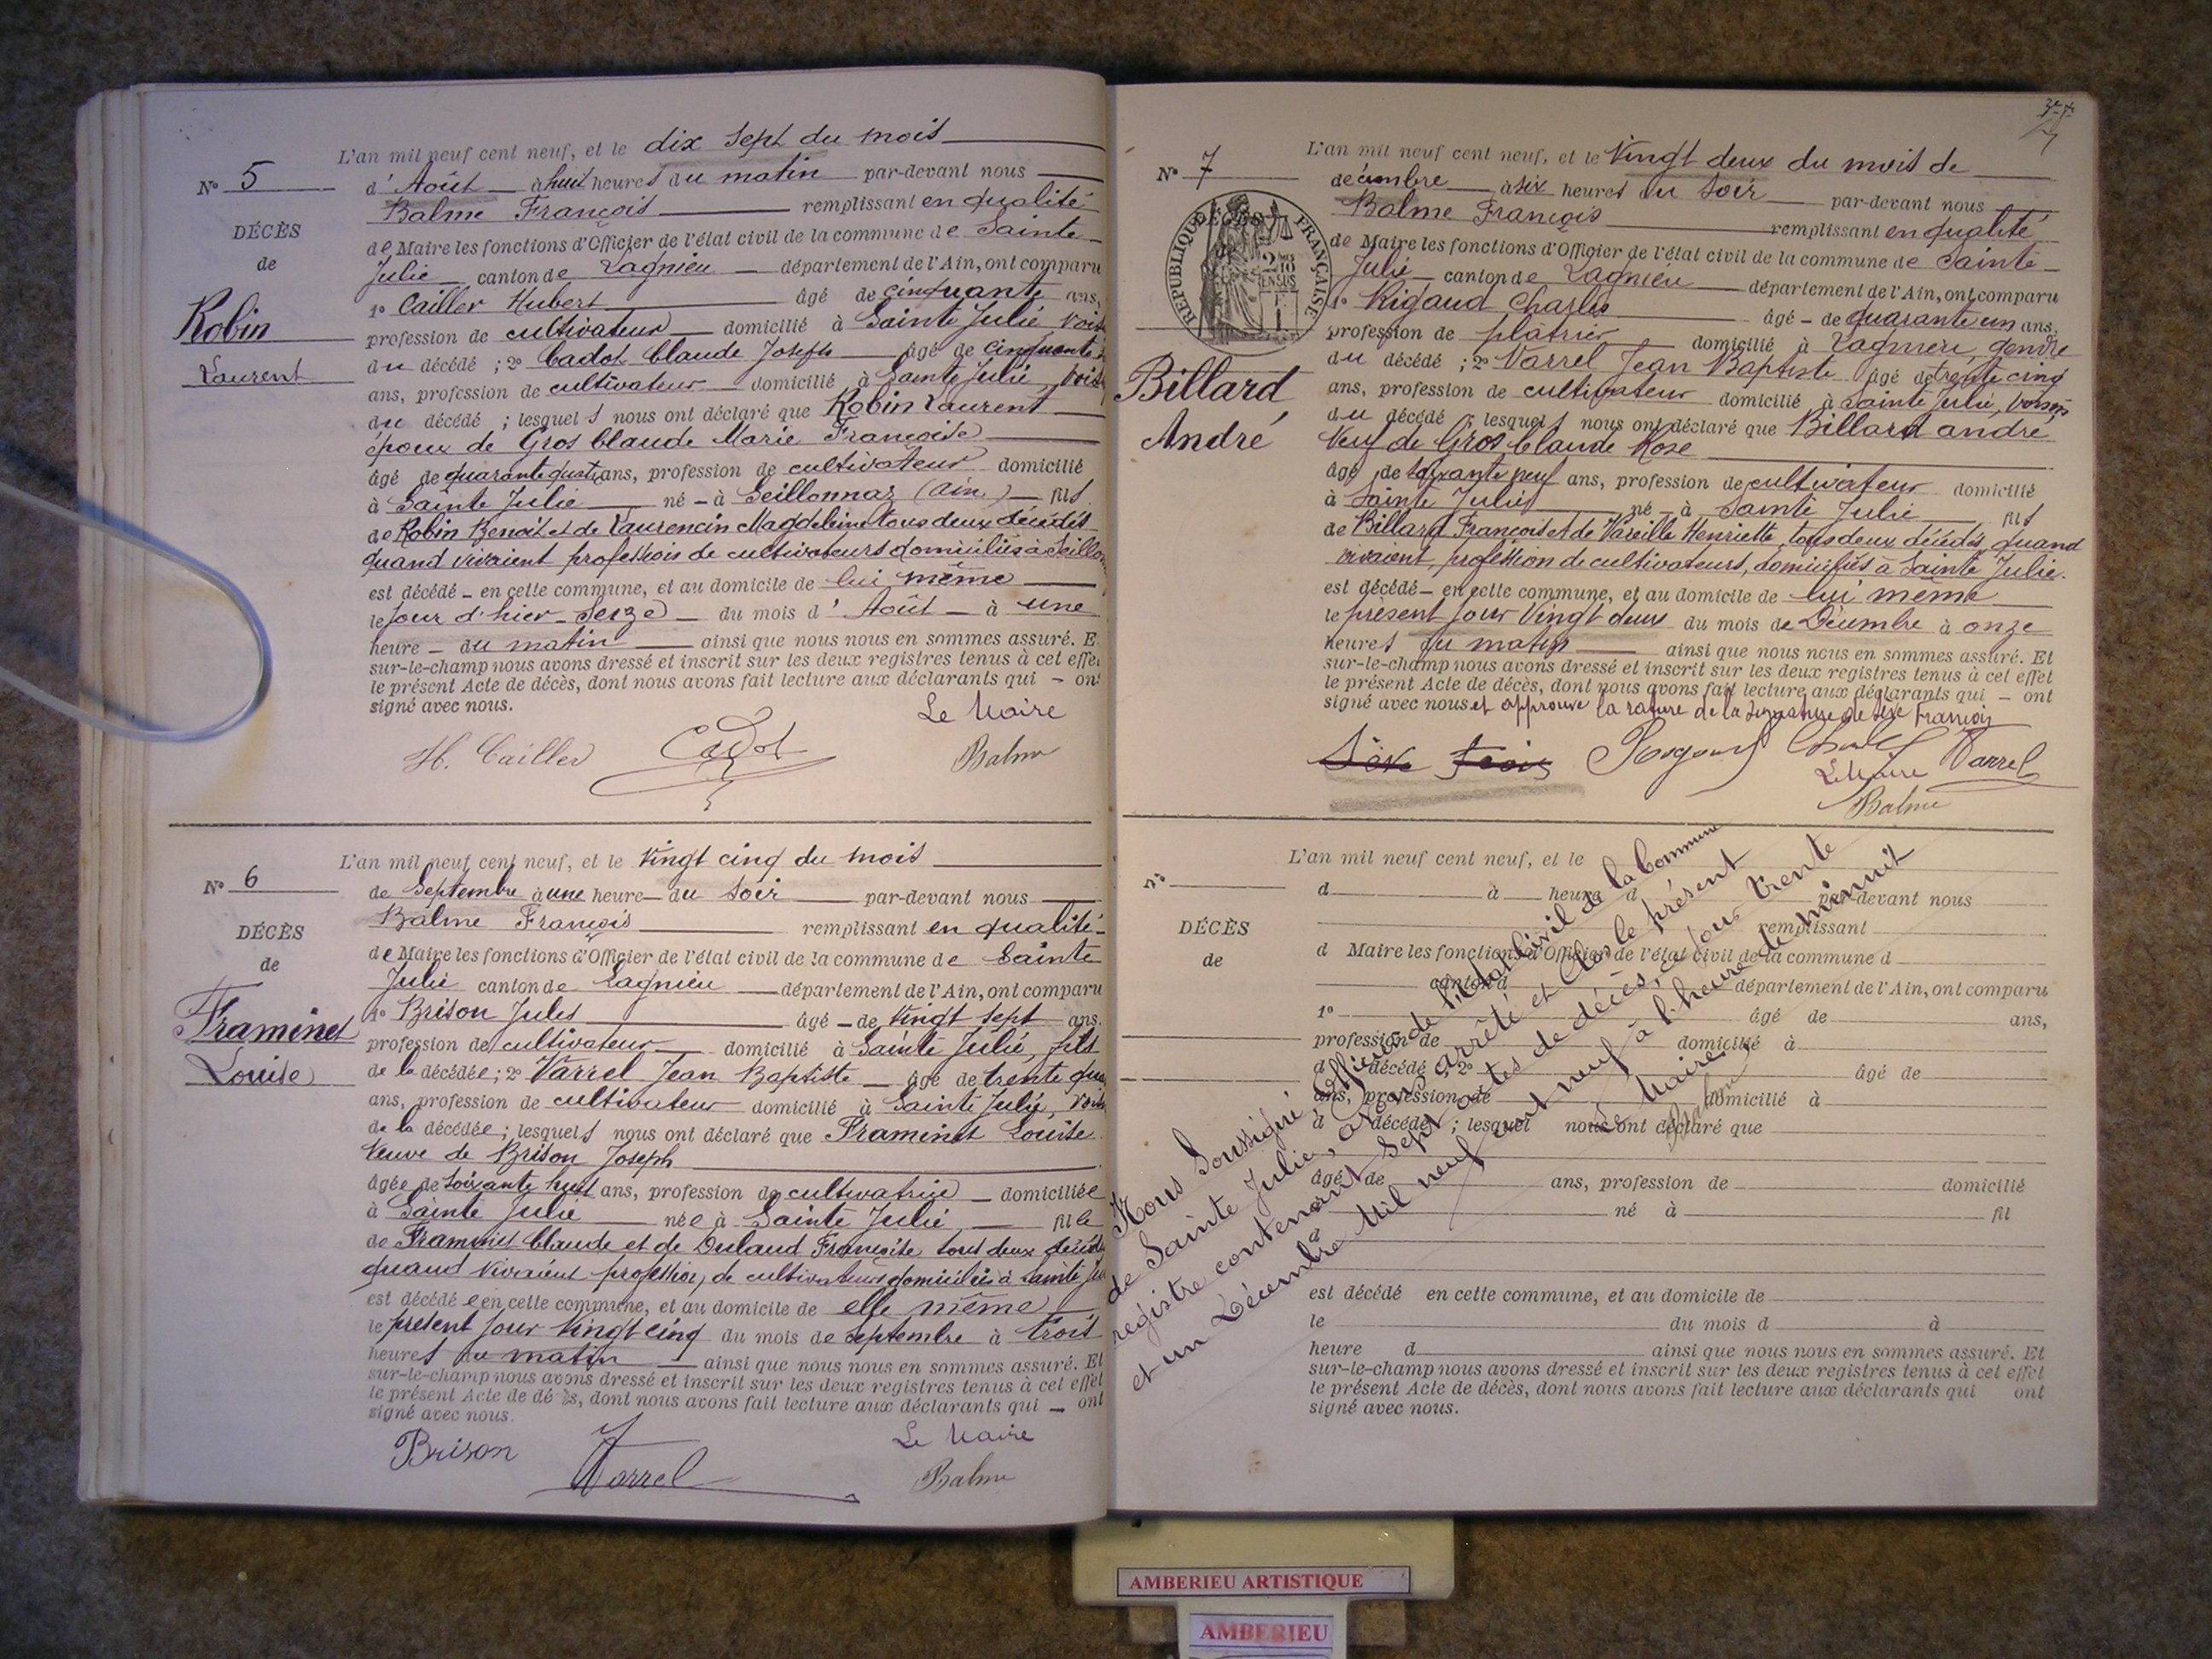 L'an mil neuf cent neuf, et le dix sept du mois
N° 5
d'Août à huit heures du matin par-devant nous
Balme François remplissant en qualité
DÉCÈS
de Maire les fonctions d'Officier de l'état civil de la commune de Sainte
de
Julie canton de Lagnieu département de l'Ain, ont comparu
1° Cailler Hubert âgé de cinquante ans,
Robin
profession de cultivateur domicilié à Sainte Julie, vois
du décédé ; 2° Cadot Claude Joseph âgé de cinquante
Laurent
ans, profession de cultivateur domicilié à Sainte Julie, vois
du décédé ; lesquels nous ont déclaré que Robin Laurent
époux de Gros Claude Marie Françoise
âgé de quarante quatre ans, profession de cultivateur domicilié
à Sainte Julie né à Seillonnaz (Ain) fils
de Robin Benoit et de Laurencin Magdeleine tous deux décédés
quand vivaient professions de cultivateurs domiciliés à Seillon
est décédé en cette commune, et au domicile de lui même
le jour d'hier Seize du mois d'Août à une
heure du matin ainsi que nous nous en sommes assuré. E
sur-le-champ nous avons dressé et inscrit sur les deux registres tenus à cet effe
le présent Acte de décès, dont nous avons fait lecture aux déclarants qui ont
signé avec nous.
Le Maire
H. Cailler Cadot Balme
L'an mil neuf cent neuf, et le Vingt cinq du mois
N° 6
de Septembre à une heure du soir par-devant nous
Balme François remplissant en qualité
DÉCÈS
de Maire les fonctions d'Officier de l'état civil de la commune de Sainte
de
Julie canton de Lagnieu département de l'Ain, ont comparu
1° Brison Jules âgé de Vingt sept ans.
Framinet
profession de cultivateur domicilié à Sainte Julie, fils
Louise
de la décédée ; 2° Varrel Jean Baptiste âgé de trente qua
ans, profession de cultivateur domicilié à Sainte Julie, vois
de la décédée ; lesquels nous ont déclaré que Framinet Louise
Veuve de Brison Joseph
âgée de soixante huit ans, profession de cultivatrice domiciliée
à Sainte Julie née à Sainte Julie fille
de Framinet Claude et de Dulaud Françoise tous deux décéd
quand vivaient profession de cultivateurs domiciliés à Sainte Ju
est décédée en cette commune, et au domicile de elle même
le présent jour Vingt cinq du mois de septembre à trois
heures du matin ainsi que nous nous en sommes assuré. Et
sur-le-champ nous avons dressé et inscrit sur les deux registres tenus à cet effet
le présent Acte de décès, dont nous avons fait lecture aux déclarants qui ont
signé avec nous.
Le Maire
Brison Varrel Balme
L'an mil neuf cent neuf, et le Vingt deux du mois de
N° 7
décembre à six heures du soir par-devant nous
Balme François remplissant en qualité
DÉCÈS
RÉPUBLIQUE FRANÇAISE
de Maire les fonctions d'Officier de l'état civil de la commune de Sainte
Julie canton de Lagnieu département de l'Ain, ont comparu
1° Rigaud Charles âgé de quarante un ans,
profession de plâtrier domicilié à Lagnieu, gendre
Billard
du décédé ; 2° Varrel Jean Baptiste âgé de trente cinq
ans, profession de cultivateur domicilié à Sainte Julie, voisin
André
du décédé ; lesquels nous ont déclaré que Billard andré
Veuf de Gros Claude Rose
âgé de soixante neuf ans, profession de cultivateur domicilié
à Sainte Julie né à Sainte Julie fils
de Billard François et de Vareille Henriette, tous deux décédés quand
vivaient, profession de cultivateurs, domiciliés à Sainte Julie.
est décédé en cette commune, et au domicile de lui même
le présent jour Vingt deux du mois de Décembre à onze
heures du matin ainsi que nous nous en sommes assuré. Et
sur-le-champ nous avons dressé et inscrit sur les deux registres tenus à cet effet
le présent Acte de décès, dont nous avons fait lecture aux déclarants qui ont
signé avec nous et approuve la rature de la signature de François
Charles Varrel
Le Maire
Balme
L'an mil neuf cent neuf, et le
N°
d à heure d par-devant nous
remplissant
DÉCÈS
d Maire les fonctions d'Officier de l'état civil de la commune d
de
canton d département de l'Ain, ont comparu
1° âgé de ans,
profession de domicilié à
d décédé ; 2° âgé de
ans, profession de domicilié à
d décédé ; lesquel nous ont déclaré que
âgé de ans, profession de domicilié
à né à fil
de
est décédé en cette commune, et au domicile de
le du mois d à
heure d ainsi que nous nous en sommes assuré. Et
sur-le-champ nous avons dressé et inscrit sur les deux registres tenus à cet effet
le présent Acte de décès, dont nous avons fait lecture aux déclarants qui ont
signé avec nous.
Nous Soussigné Officier de l'état Civil de la Commune
de Sainte Julie, avons arrêté et Clos le présent
registre contenant Sept actes de décès, ce jour trente
et un Décembre Mil neuf cent neuf à l'heure de minuit
Le Maire,
Balme
AMBERIEU ARTISTIQUE
AMBERIEU